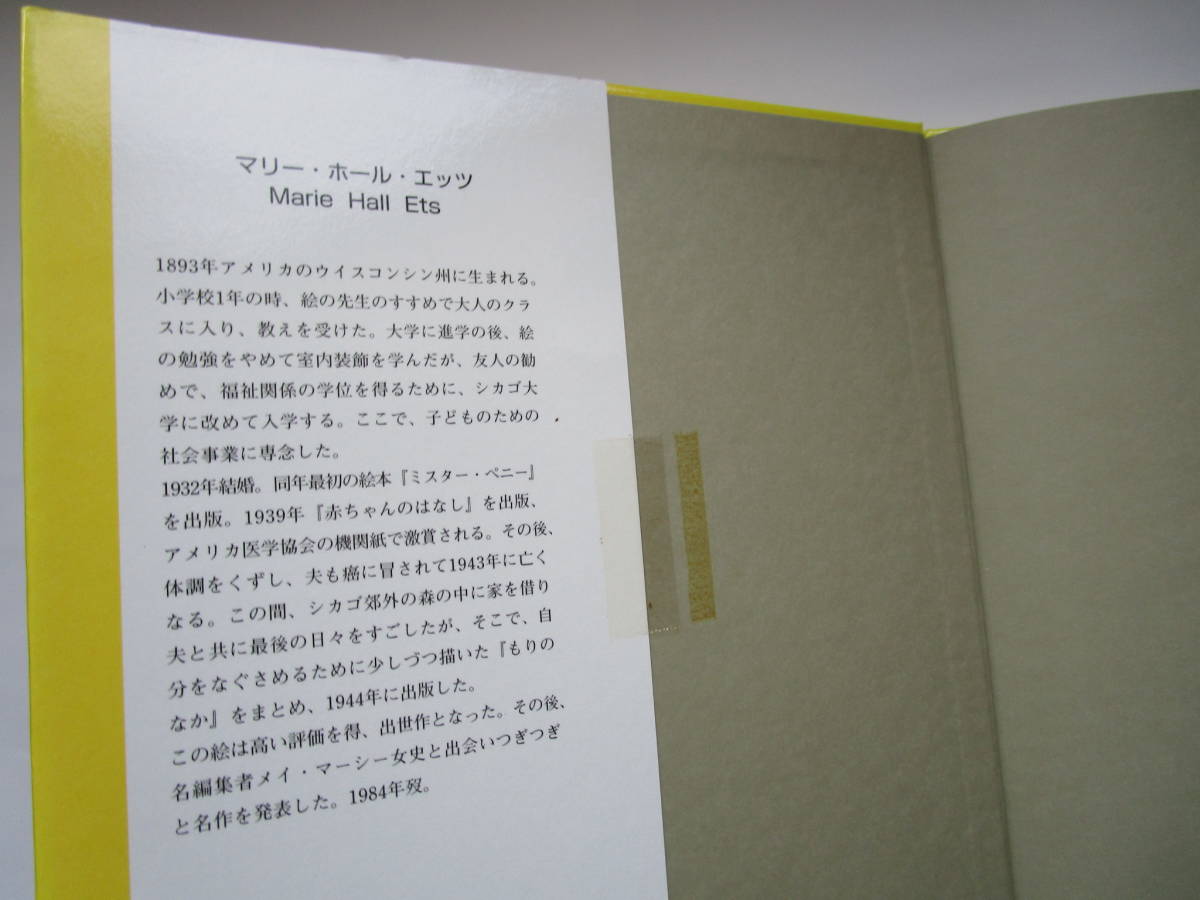 マリー・ホール・エッツ
Marie Hall Ets
1893年アメリカのウイスコンシン州に生まれる。
小学校1年の時、絵の先生のすすめで大人のクラ
スに入り、教えを受けた。大学に進学の後、絵
の勉強をやめて室内装飾を学んだが、友人の勧
めで、福祉関係の学位を得るために、シカゴ大
学に改めて入学する。ここで、子どものための
社会事業に専念した。
1932年結婚。同年最初の絵本『ミスター・ペニー』
を出版。1939年『赤ちゃんのはなし』を出版、
アメリカ医学協会の機関紙で激賞される。その後、
体調をくずし、夫も癌に冒されて1943年に亡く
なる。この間、シカゴ郊外の森の中に家を借り
夫と共に最後の日々をすごしたが、そこで、自
分をなぐさめるために少しづつ描いた『もりの
なか』をまとめ、1944年に出版した。
この絵は高い評価を得、出世作となった。その後、
名編集者メイ・マーシー女史と出会いつぎつぎ
と名作を発表した。1984年歿。